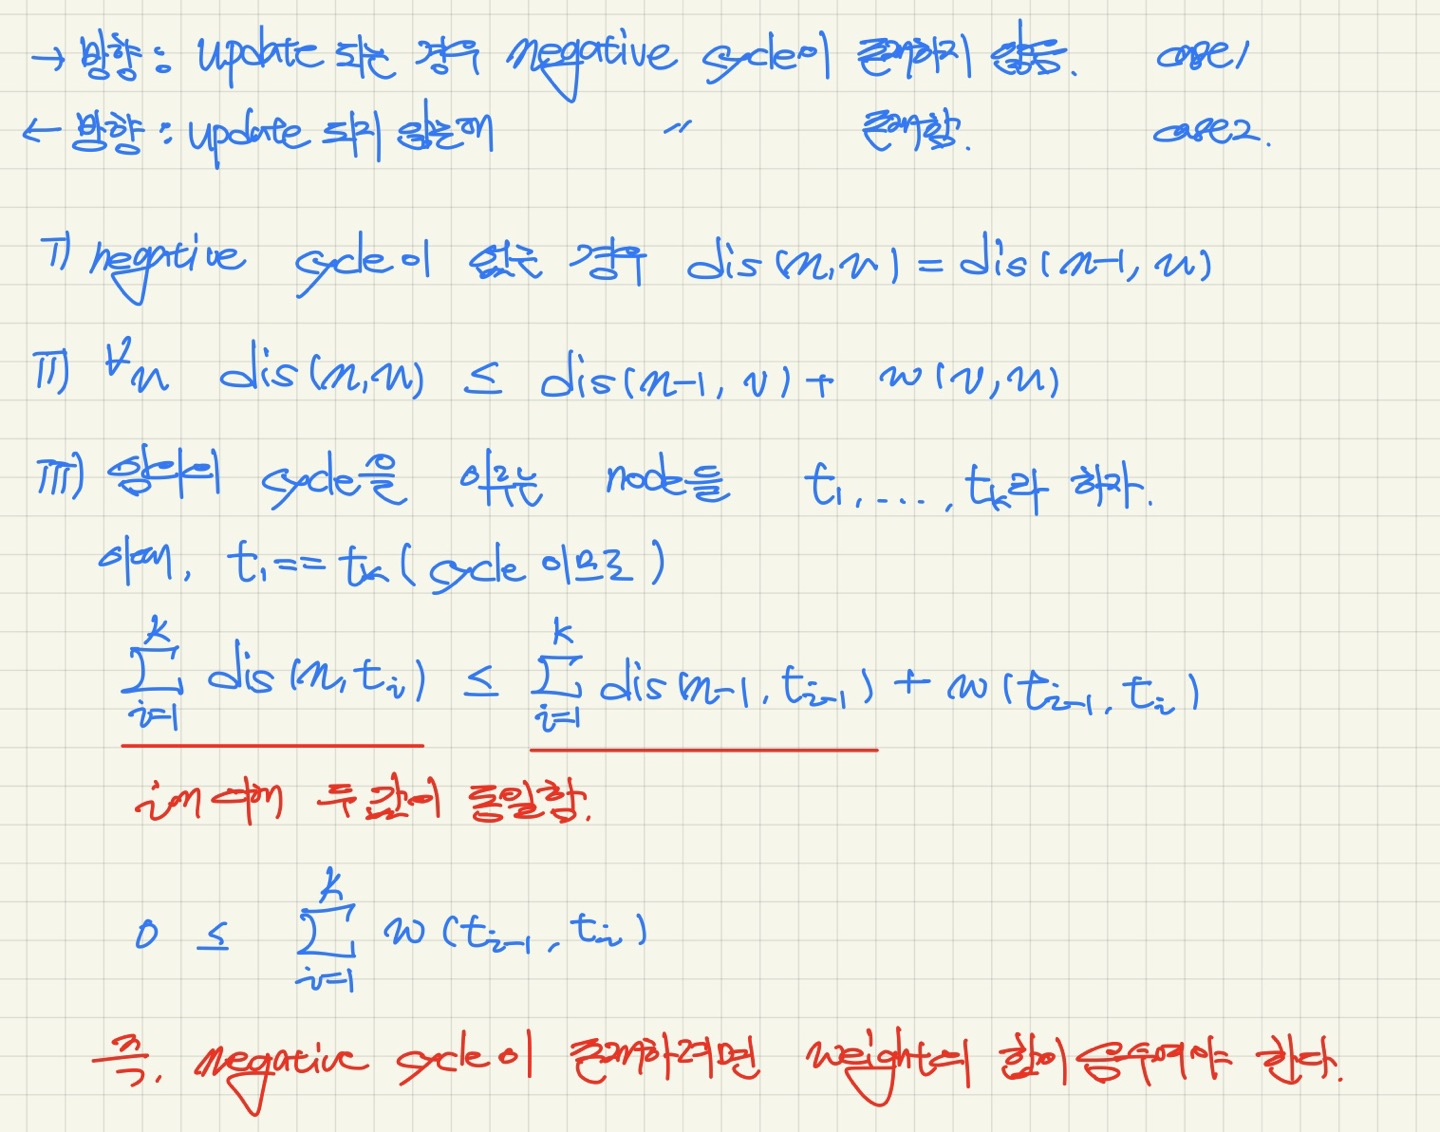 → 방향 : update 되는 경우 negative cycle이 존재하지 않음. case1
← 방향 : update 되지 않는데 〃 존재함. case2.
I) negative cycle이 없는 경우 dis(n,u) = dis(n-1, u)
II) ∀u dis(n,u) ≤ dis(n-1, v) + w(v,u)
III) 임의의 cycle을 이루는 node들을 t₁, ...., tₖ라 하자.
이때, t₁ == tₖ (cycle 이므로)
∑_{i=1}^{k} dis(n,tᵢ) ≤ ∑_{i=1}^{k} dis(n-1, tᵢ₋₁) + w(tᵢ₋₁, tᵢ)
i에 대해 두 값이 동일함.
0 ≤ ∑_{i=1}^{k} w(tᵢ₋₁, tᵢ)
즉, negative cycle이 존재하려면 weight의 합이 음수여야 한다.